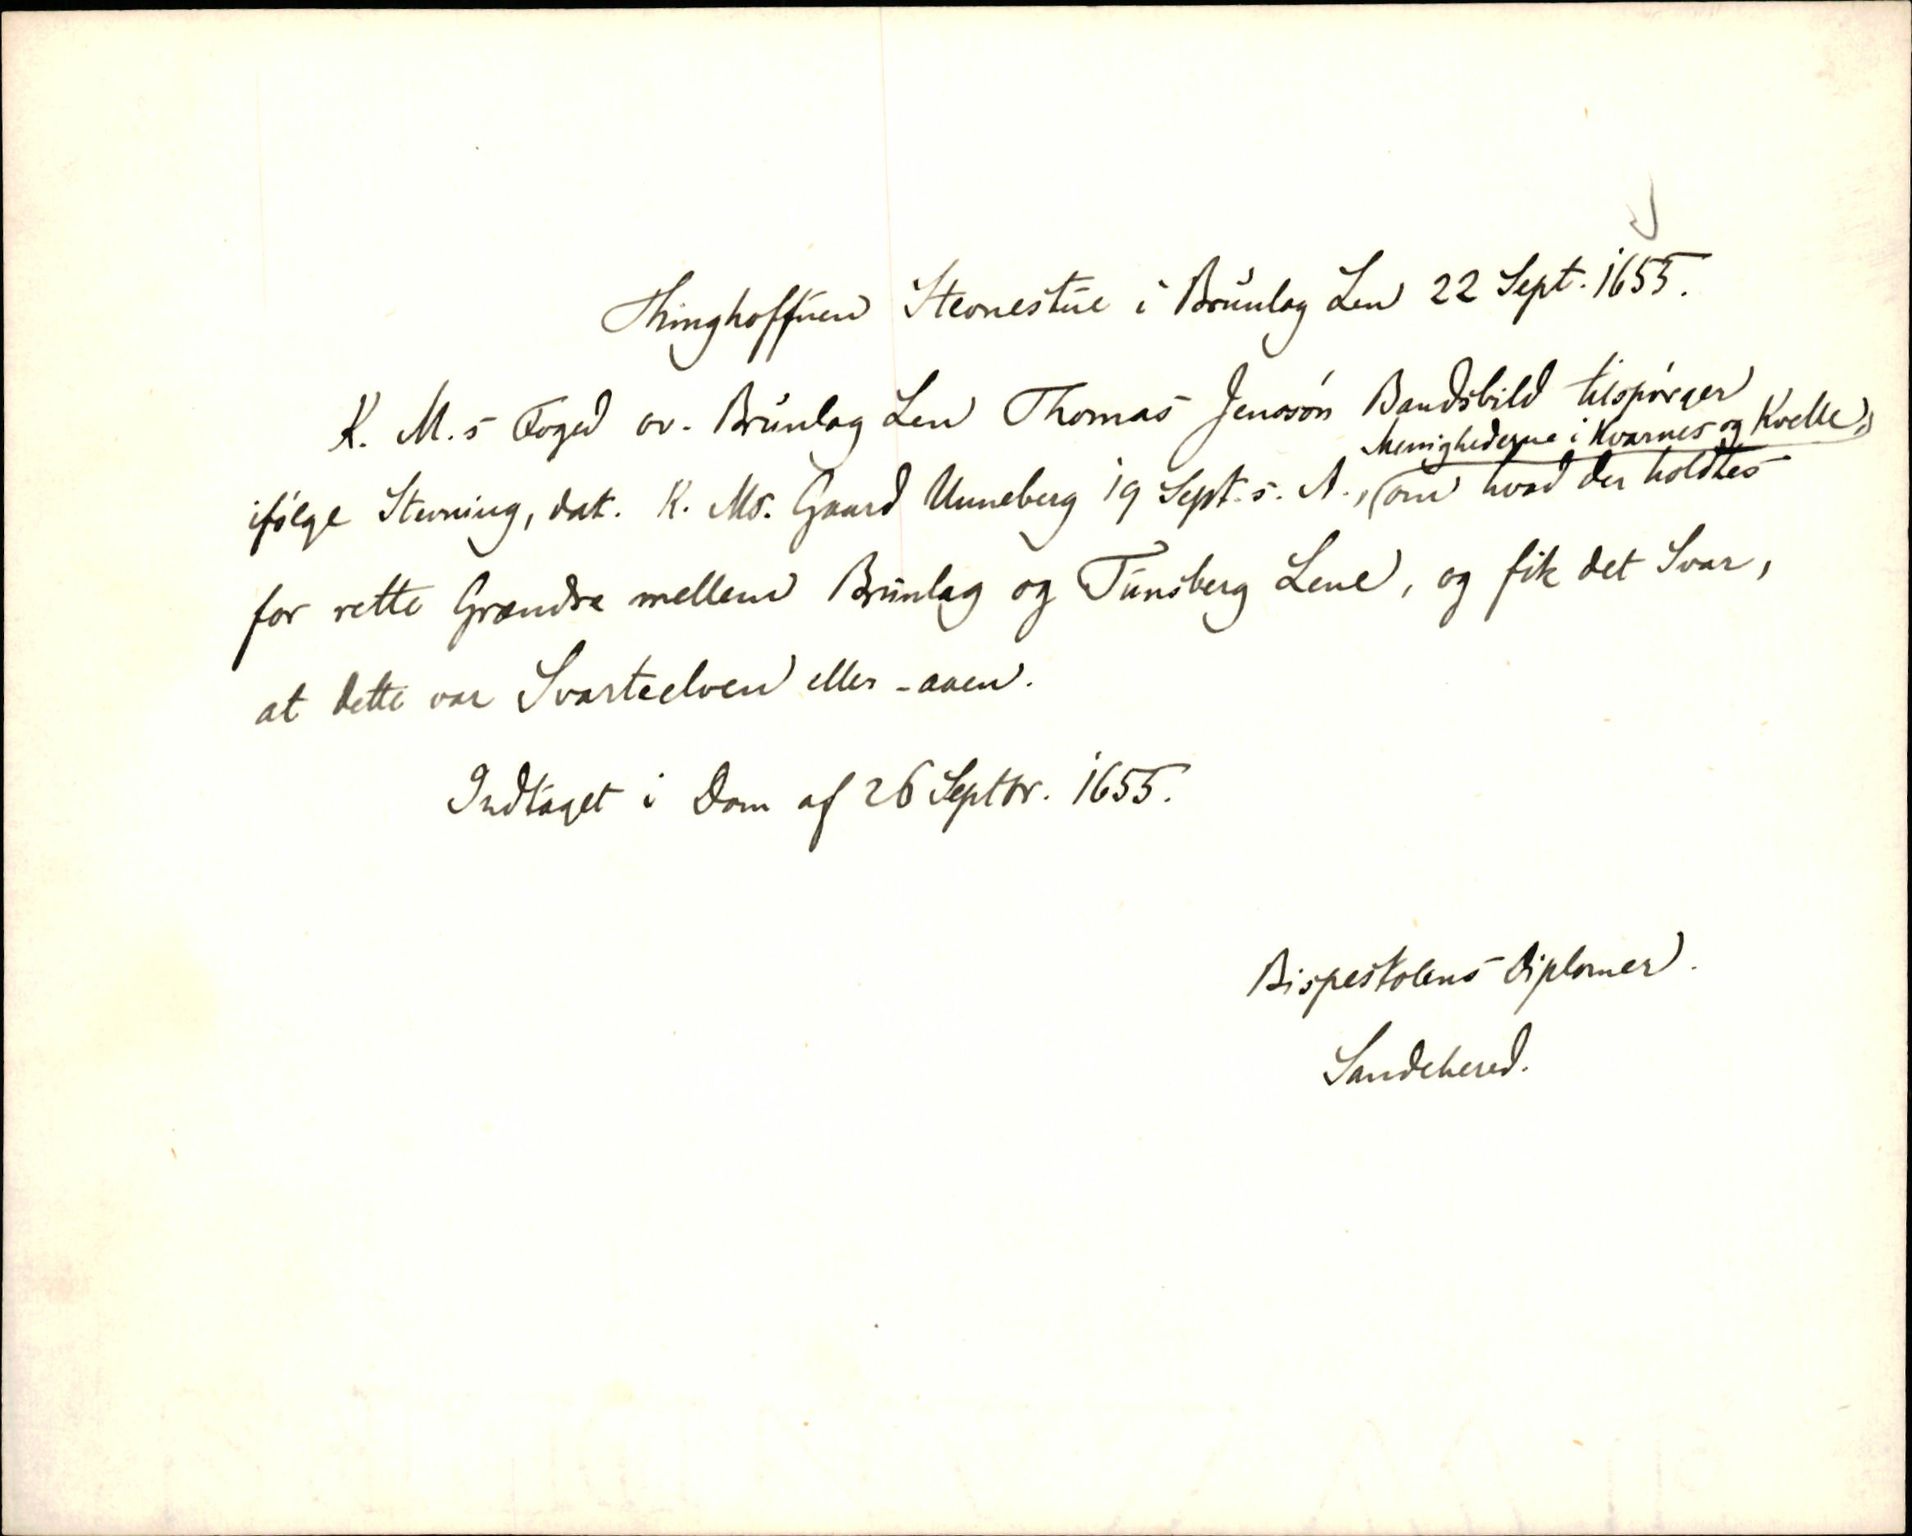 Thinghoffuen Stevnestue i Brunlag Len 22 Sept. 1655.
K. M.s Foged ov. Brunlag Len Thomas Jenssøn Bandsbild tilspørger
Menighederne i Kvarnes og Kvelle,
ifølge Stevning, dat. K. Ms. Gaard Unneberg 19 Sept. s. A., om hvad der holdtes
for rette Grændse mellem Brunlag og Tunsberg Lene, og fik det Svar,
at dette var Svarteelven eller -aaen.
Indtaget i Dom af 26 Septbr. 1655.
Bispestolens Diplomer.
Sandehered.